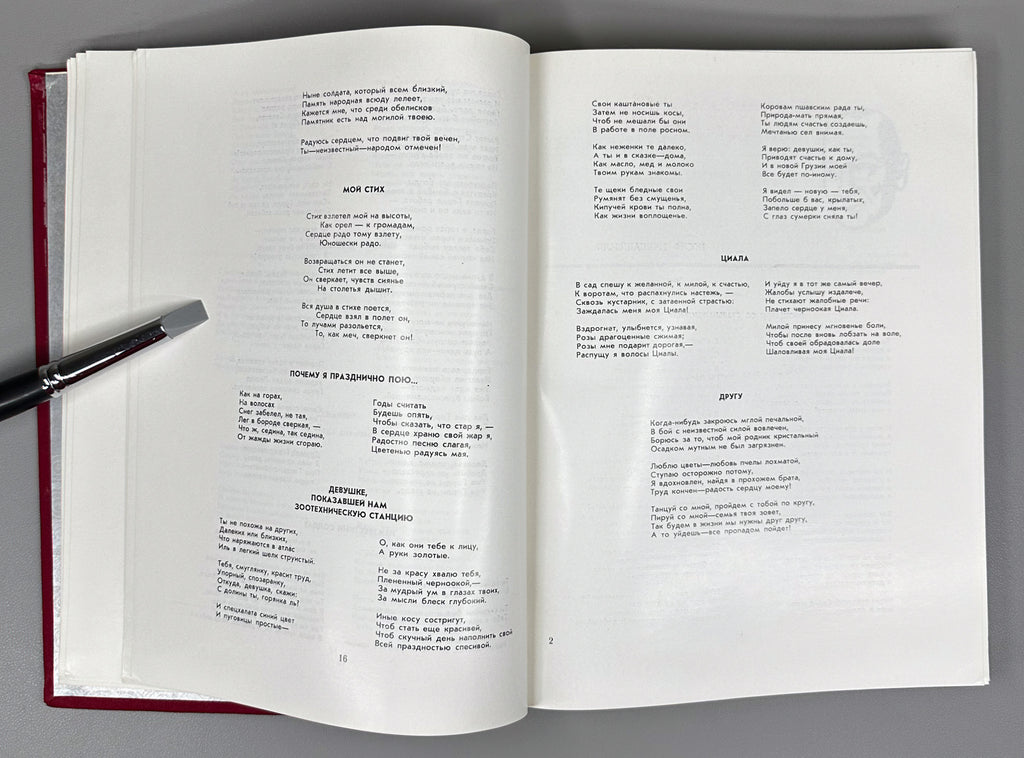 Ныне солдата, который всем близкий,
Память народная всюду лелеет,
Кажется мне, что среди обелисков
Памятник есть над могилой твоею.
Радуюсь сердцем, что подвиг твой вечен,
Ты—неизвестный—народом отмечен!
МОЙ СТИХ
Стих взлетел мой на высоты,
Как орел — к громадам,
Сердце радо тому взлету,
Юношески радо.
Возвращаться он не станет,
Стих летит все выше,
Он сверкает, чувств сиянье
На столетья дышит.
Вся душа в стихе поется,
Сердце взял в полет он,
То лучами разольется,
То, как меч, сверкнет он!
ПОЧЕМУ Я ПРАЗДНИЧНО ПОЮ...
Как на горах,
На волосах
Снег забелел, не тая,
Лег в бороде сверкая, —
Что ж, седина, так седина,
От жажды жизни сгораю.
Годы считать
Будешь опять,
Чтобы сказать, что стар я, —
В сердце храню свой жар я,
Радостно песню слагая,
Цветенью радуясь мая.
ДЕВУШКЕ,
ПОКАЗАВШЕЙ НАМ
ЗООТЕХНИЧЕСКУЮ СТАНЦИЮ
Ты не похожа на других,
Далеких или близких,
Что наряжаются в атлас
Иль в легкий шелк струистый.
Тебя, смуглянку, красит труд,
Упорный, спозаранку,
Откуда, девушка, скажи:
С долины ты, горянка ль?
И спецхалата синий цвет
И пуговицы простые—
О, как они тебе к лицу,
А руки золотые.
Не за красу хвалю тебя,
Плененный черноокой,—
За мудрый ум в глазах твоих,
За мысли блеск глубокий.
Иные косу состригут,
Чтоб стать еще красивей,
Чтоб скучный день наполнить свой
Всей праздностью спесивой.
16
Свои каштановые ты
Затем не носишь косы,
Чтоб не мешали бы они
В работе в поле росном.
Как неженки те далеко,
А ты и в сказке—дома,
Как масло, мед и молоко
Твоим рукам знакомы.
Те щеки бледные свои
Румянят без смущенья,
Кипучей крови ты полна,
Как жизни воплощенье.
Коровам пшавским рада ты,
Природа-мать прямая,
Ты людям счастье создаешь,
Мечтанью сел внимая.
Я верю: девушки, как ты,
Приводят счастье к дому,
И в новой Грузии моей
Все будет по-иному.
Я видел — новую — тебя,
Побольше б вас, крылатых,
Запело сердце у меня,
С глаз сумерки сняла ты!
ЦИАЛА
В сад спешу к желанной, к милой, к счастью,
К воротам, что распахнулись настежь, —
Сквозь кустарник, с затаенной страстью:
Заждалась меня моя Циала!
Вздрогнат, улыбнется, узнавая,
Розы драгоценные сжимая;
Розы мне подарит дорогая,—
Распущу я волосы Циалы.
И уйду я в тот же самый вечер,
Жалобы услышу издалече,
Не стихают жалобные речи:
Плачет черноокая Циала.
Милой принесу мгновенье боли,
Чтобы после вновь лобзать на воле,
Чтоб своей обрадовалась доле
Шаловливая моя Циала!
ДРУГУ
Когда-нибудь закроюсь мглой печальной,
В бой с неизвестной силой вовлечен,
Борюсь за то, чтоб мой родник кристальный
Осадком мутным не был загрязнен.
Люблю цветы—любовь пчелы лохматой,
Ступаю осторожно потому,
Я вдохновлен, найдя в прохожем брата,
Труд кончен—радость сердцу моему!
Танцуй со мной, пройдем с тобой по кругу,
Пируй со мной—семья твоя зовет,
Так будем в жизни мы нужны друг другу,
А то уйдешь—все пропадом пойдет!
2